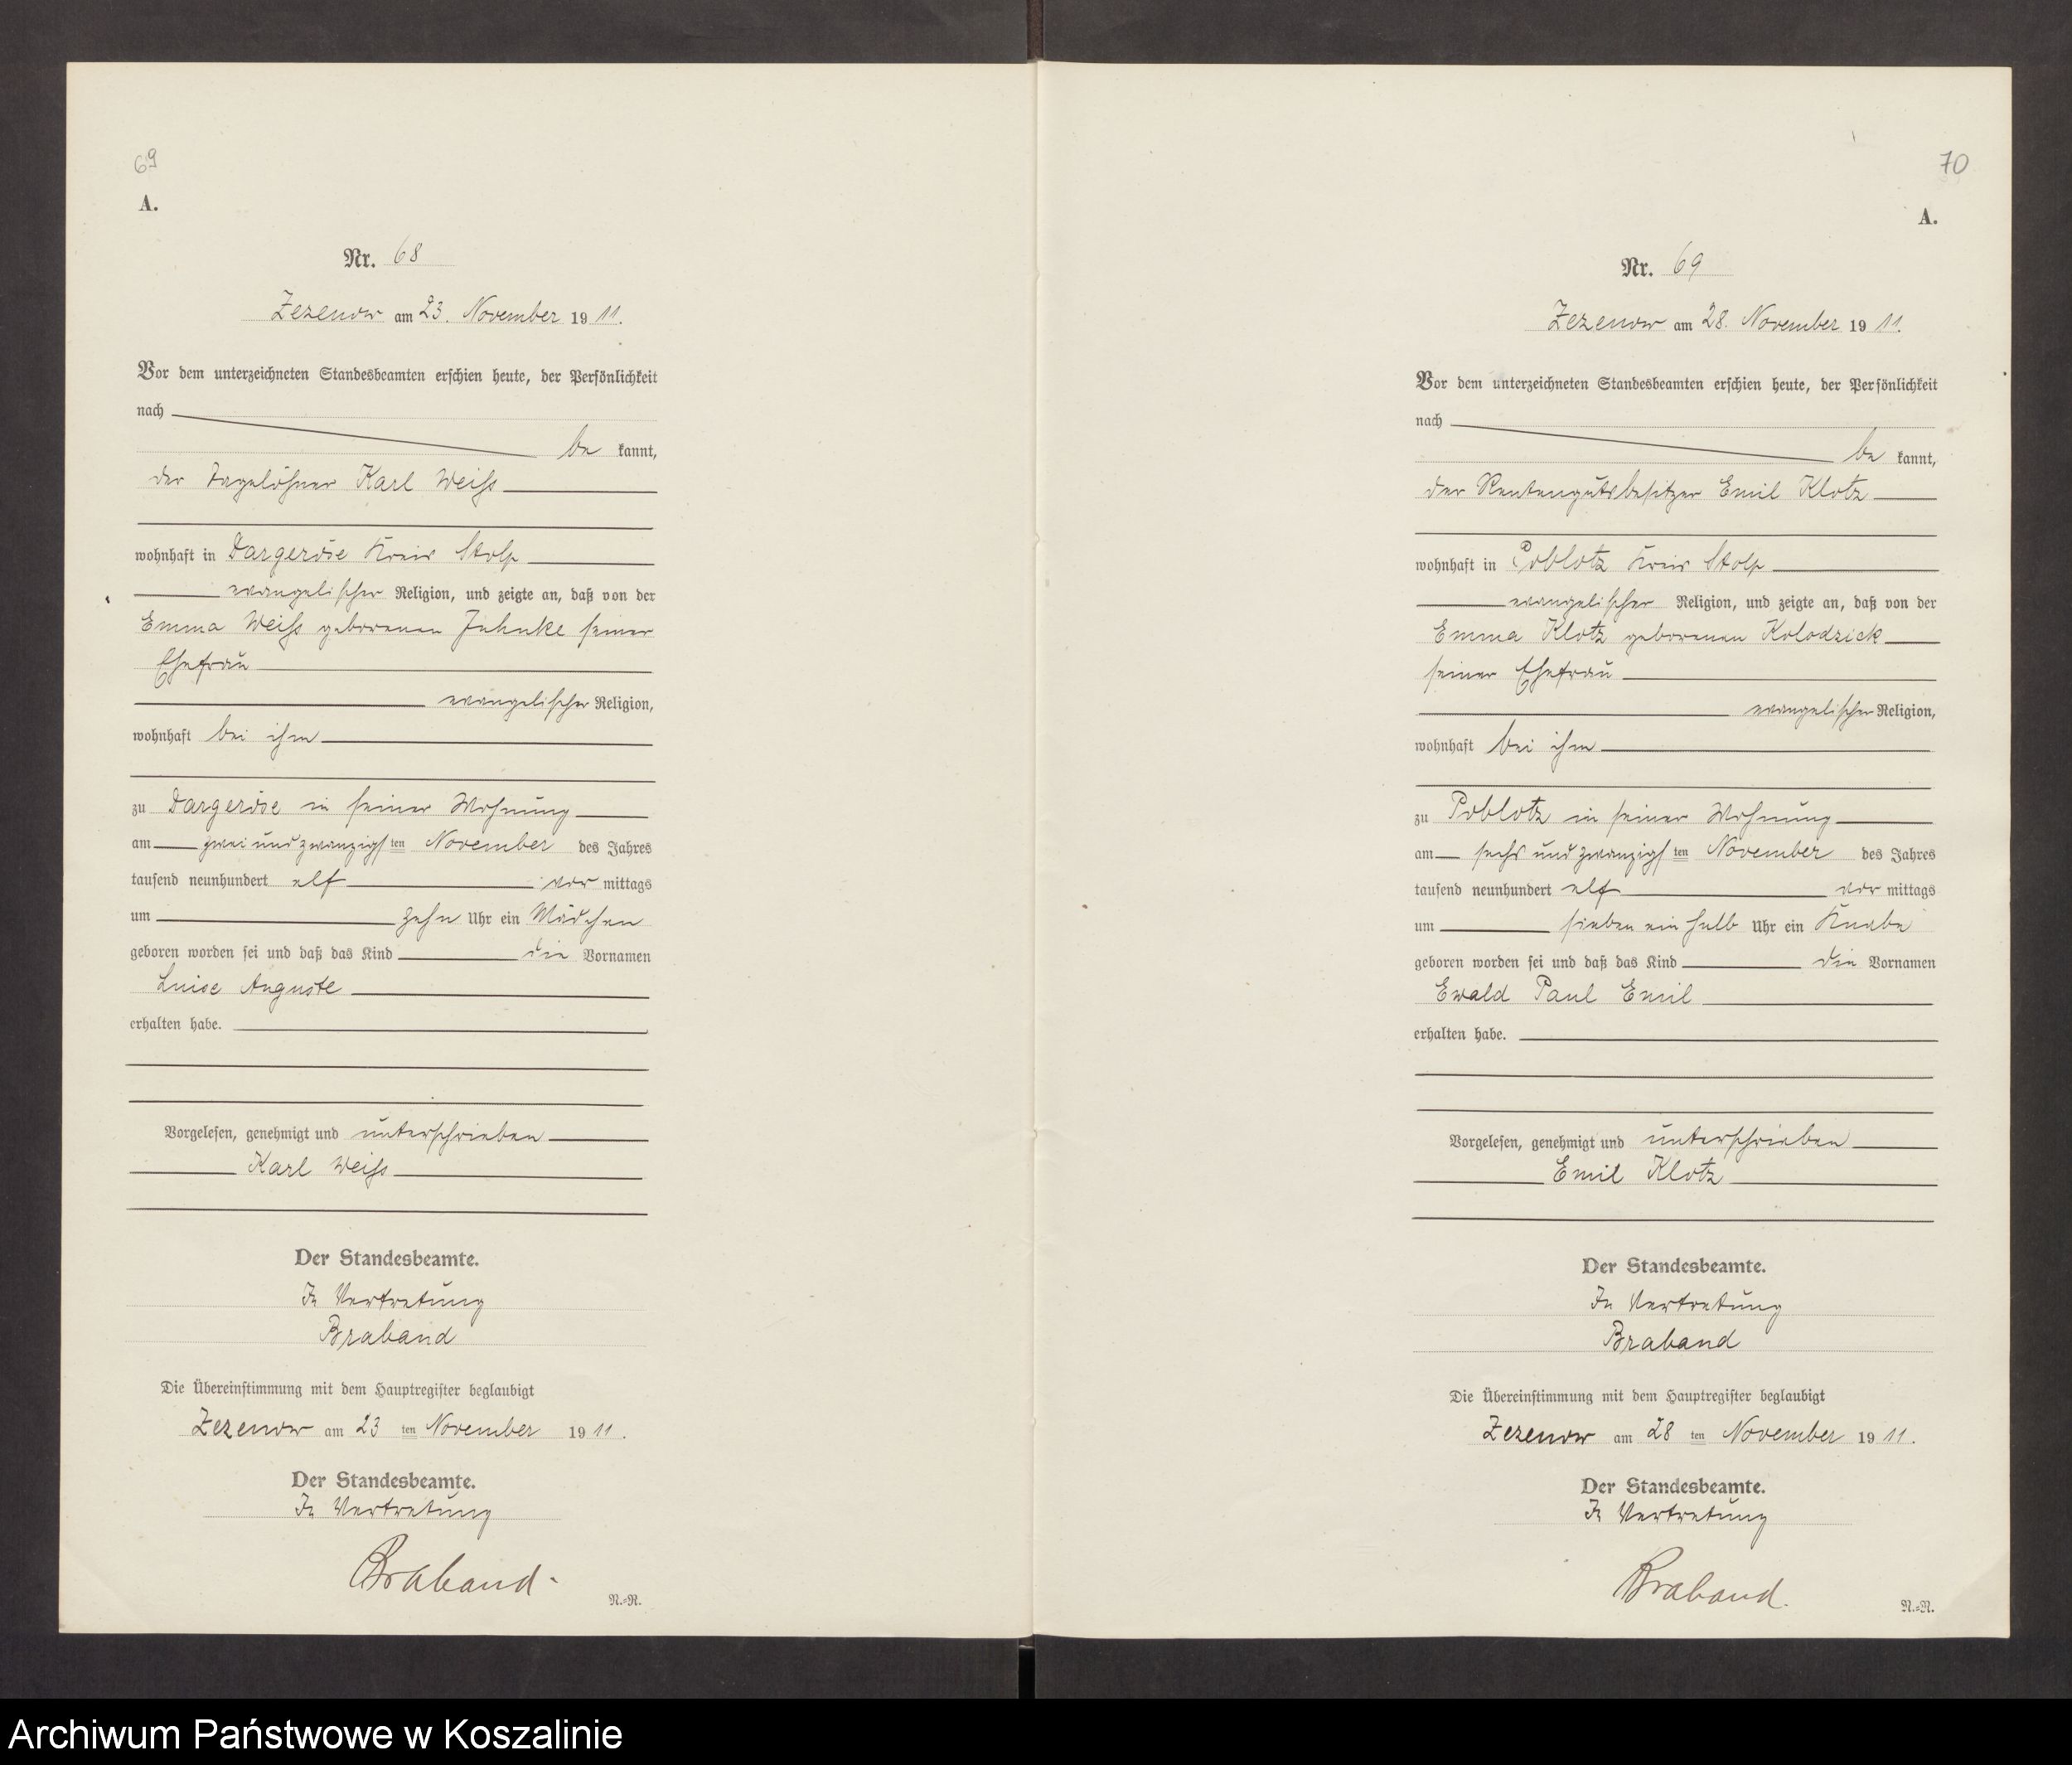 69
A.
Nr. 68
Zezenow am 23. November 1911.
Vor dem unterzeichneten Standesbeamten erschien heute, der Persönlichkeit
nach
be kannt,
der Tagelöhner Karl Weiß
wohnhaft in Dargeröse Kreis Stolp
evangelischer Religion, und zeigte an, daß von der
Emma Weiß geborenen Jahnke seiner
Ehefrau
evangelischer Religion,
wohnhaft bei ihm
zu Dargeröse in seiner Wohnung
am zwei und zwanzigsten November des Jahres
tausend neunhundert elf vor mittags
um zehn Uhr ein Mädchen
geboren worden sei und daß das Kind die Vornamen
Luise Auguste
erhalten habe.
Vorgelesen, genehmigt und unterschrieben
Karl Weiß
Der Standesbeamte.
In Vertretung
Braband
Die Übereinstimmung mit dem Hauptregister beglaubigt
Zezenow am 23 ten November 1911.
Der Standesbeamte.
In Vertretung
Braband.
N.=R.
70
A.
Nr. 69
Zezenow am 28. November 1911.
Vor dem unterzeichneten Standesbeamten erschien heute, der Persönlichkeit
nach
be kannt,
der Rentengutsbesitzer Emil Klotz
wohnhaft in Poblotz Kreis Stolp
evangelischer Religion, und zeigte an, daß von der
Emma Klotz geborenen Kolodzick
seiner Ehefrau
evangelischer Religion,
wohnhaft bei ihm
zu Poblotz in seiner Wohnung
am sechs und zwanzigsten November des Jahres
tausend neunhundert elf vor mittags
um sieben ein halb Uhr ein Knabe
geboren worden sei und daß das Kind die Vornamen
Ewald Paul Emil
erhalten habe.
Vorgelesen, genehmigt und unterschrieben
Emil Klotz
Der Standesbeamte.
In Vertretung
Braband
Die Übereinstimmung mit dem Hauptregister beglaubigt
Zezenow am 28 ten November 1911.
Der Standesbeamte.
In Vertretung
Braband.
N.=R.
Archiwum Państwowe w Koszalinie